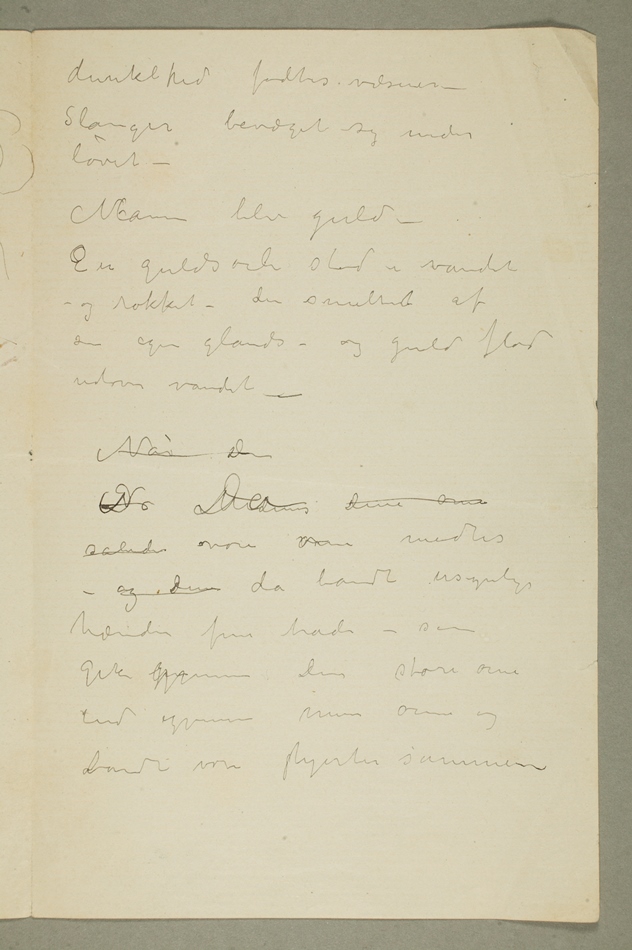 dunkelhed fødtes væsener –
Slanger bevæget sig under
løvet –
Månen blev guld –
En guldsøile stod i vandet
– og rokket – den smeltet af
sin egen glands – og guld flød
udover vandet –
Når di
No Deres dine øine
øine mødtes
– og dine da bandt usynlige
hænder fine tråde – som
gik gjennem dine store øine
ind igjennem mine øine og
bandt vore hjerter sammen